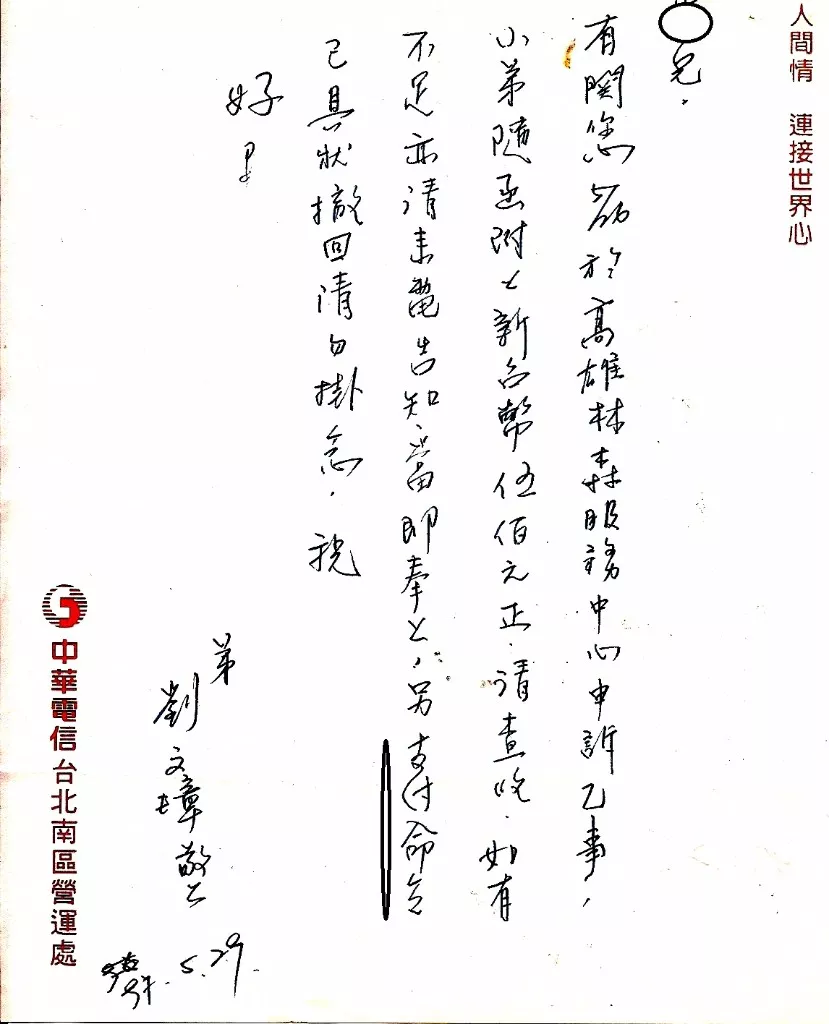 人間情 連接世界心
兄.
有関您於高雄林森服務中心申訴乙事,
小弟隨函附上新台幣伍佰元正.請查收.如有
不足亦請來電告知.當即奉上,另支付命令
已具狀撤回請勿掛念.祝
好!
弟
劉文璋敬上
5.29.
中華電信台北南區營運處